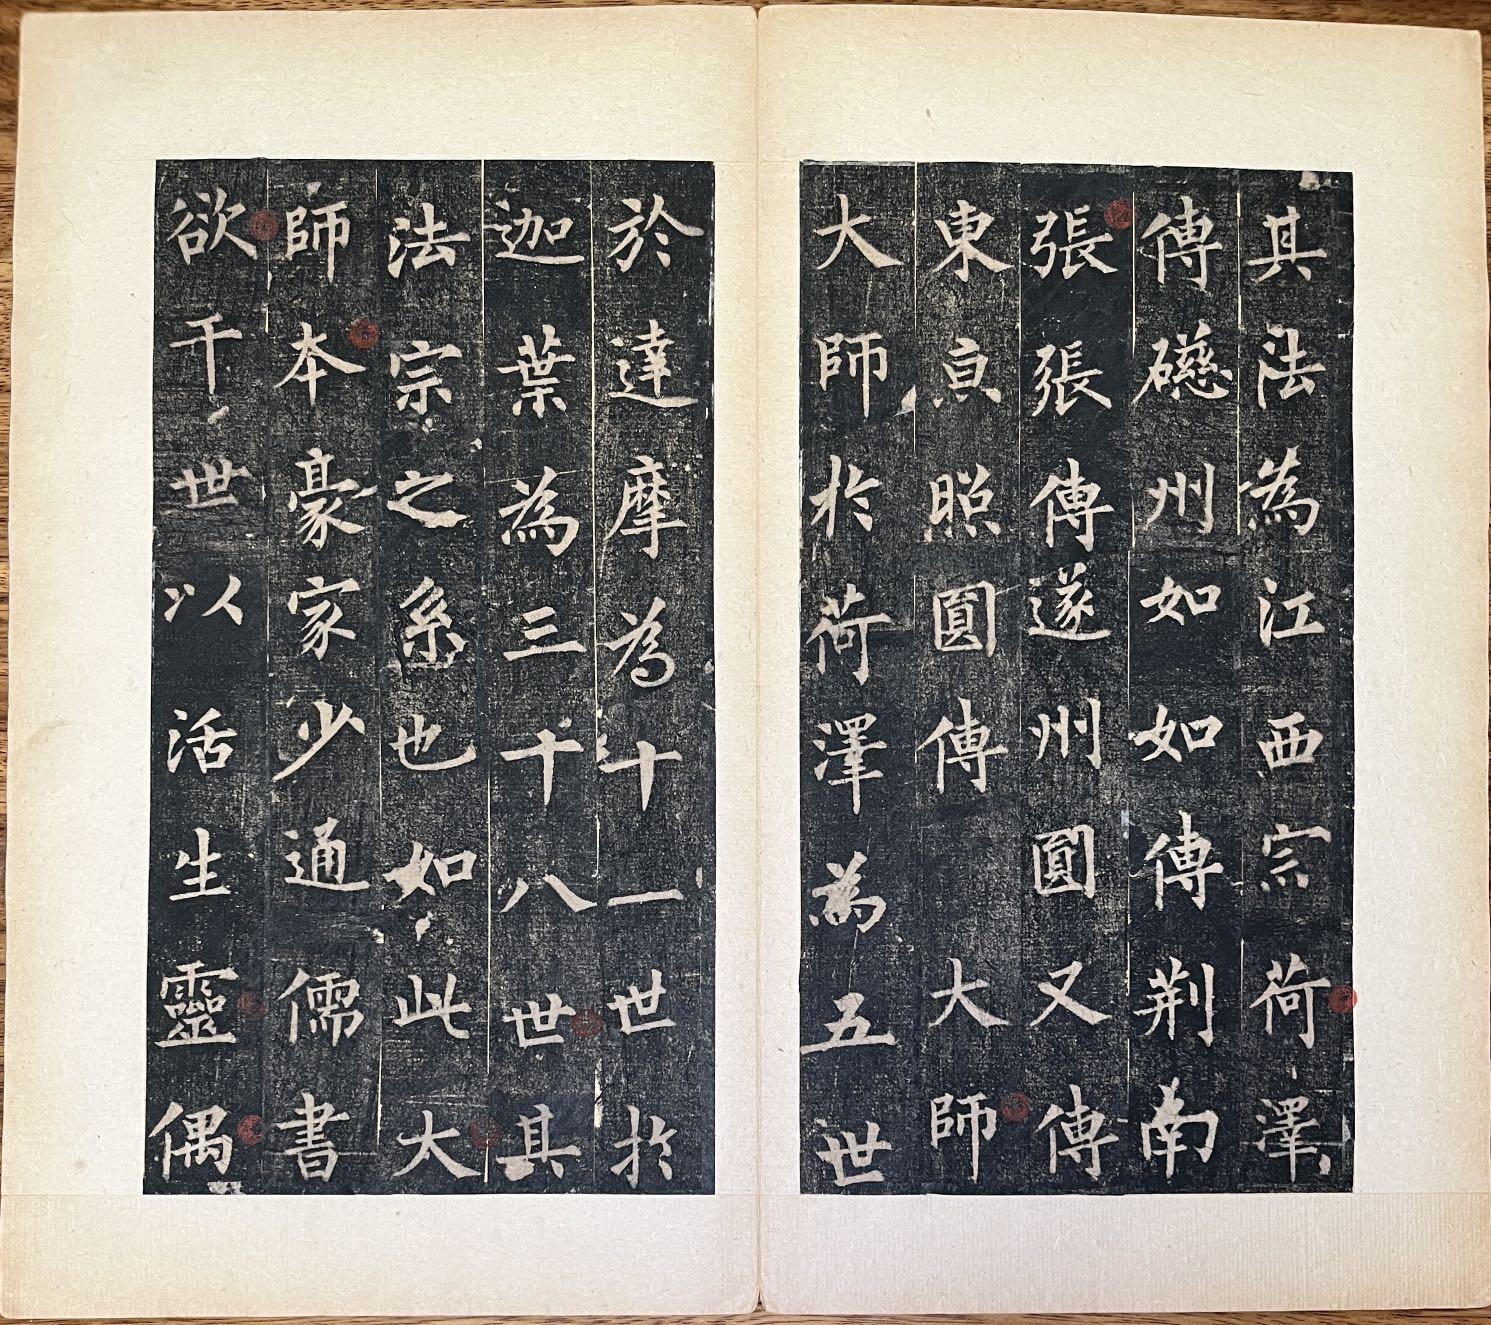 其法為江西宗荷澤
傳礠州如如傳荆南
張張傳遂州圓又傳
東京照圓傳大師
大師於荷澤為五世
於達摩為十一世於
迦葉為三十八世其
法宗之系也如此大
師本豪家少通儒書
欲干世以活生靈偶